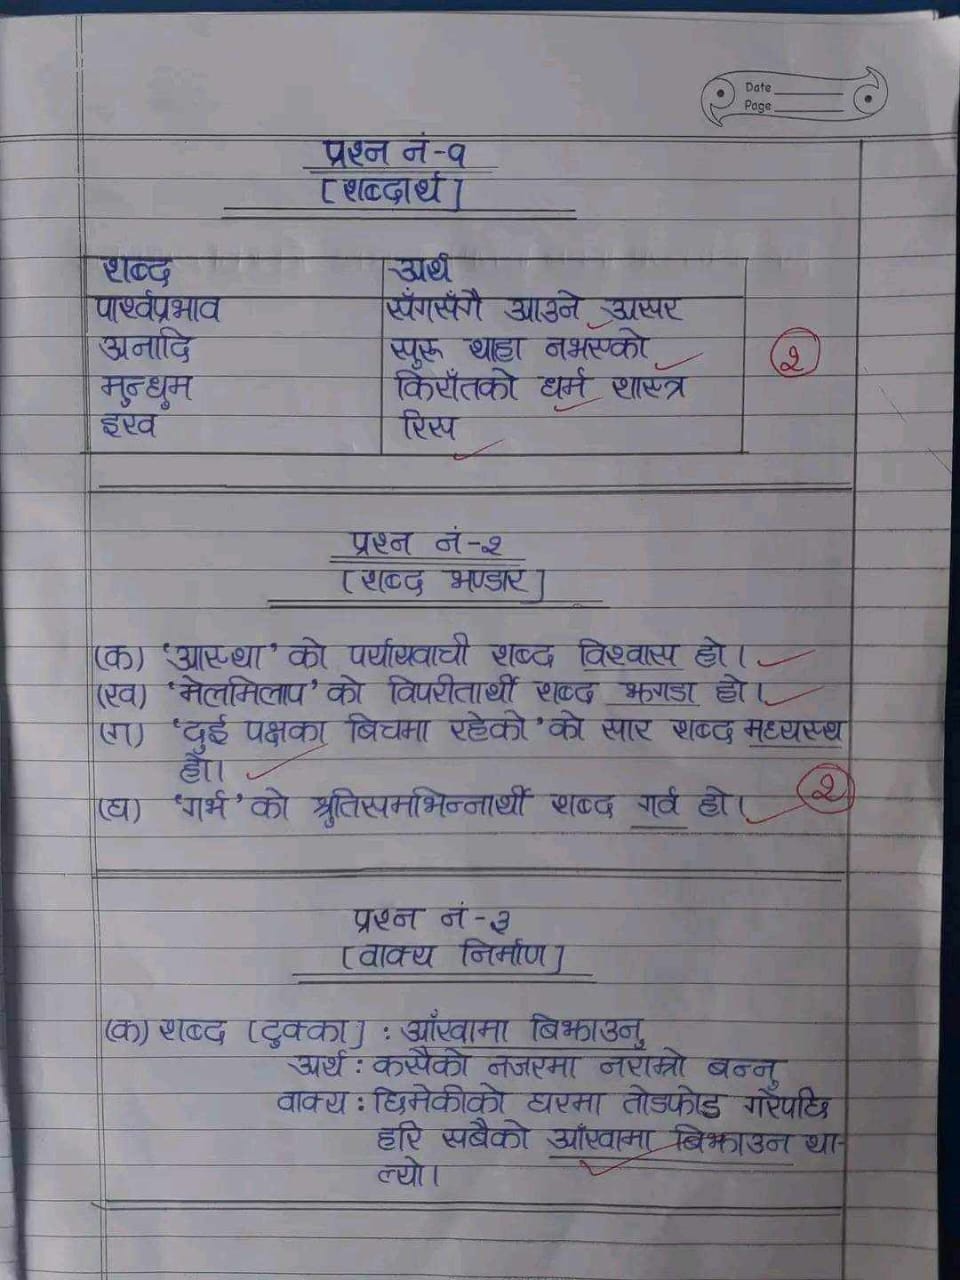 Date
Page
प्रश्न नं-१
[शब्दार्थ]
शब्द अर्थ
पार्श्वप्रभाव सँगसँगै आउने असर
अनादि सुरू थाहा नभएको
मुन्धुम किराँतको धर्म शास्त्र
इख रिस
२
प्रश्न नं-२
[शब्द भण्डार]
(क) 'आस्था' को पर्यायवाची शब्द विश्वास हो।
(ख) 'मेलमिलाप' को विपरीतार्थी शब्द झगडा हो।
(ग) 'दुई पक्षका बिचमा रहेको' को सार शब्द मध्यस्थ
हो।
(घ) 'गर्भ' को श्रुतिसमभिन्नार्थी शब्द गर्व हो।
२
प्रश्न नं-३
[वाक्य निर्माण]
(क) शब्द [टुक्का] : आँखामा बिझाउनु
अर्थ : कसैको नजरमा नराम्रो बन्नु
वाक्य : छिमेकीको घरमा तोडफोड गरेपछि
हरि सबैको आँखामा बिझाउन था-
ल्यो।